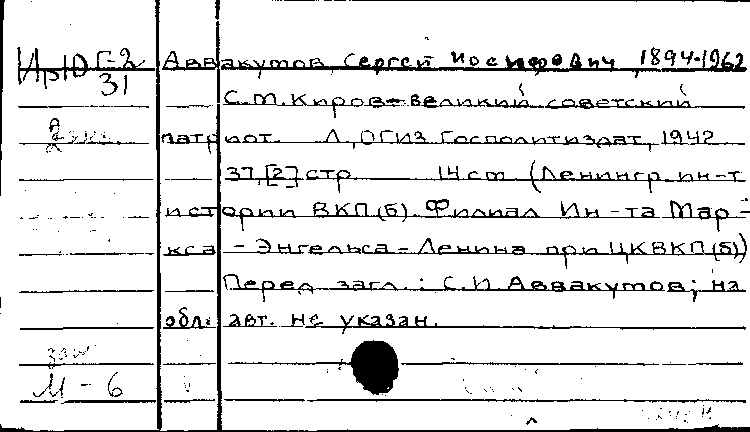 ИрЮ Г-2
31
Аввакумов, Сергей Иосифович, 1894-1962
С.М.Киров-великий советский
патриот. Л., ОГИЗ Госполитиздат, 1942
37,[2]стр 14cm (Ленингр. ин-т
истории ВКП(б) Филиал Ин-та Мар-
кса - Энгельса - Ленина при ЦКВКП(б))
Перед загл.: С.И.Аввакумов; на
обл: авт. не указан.
М - 6